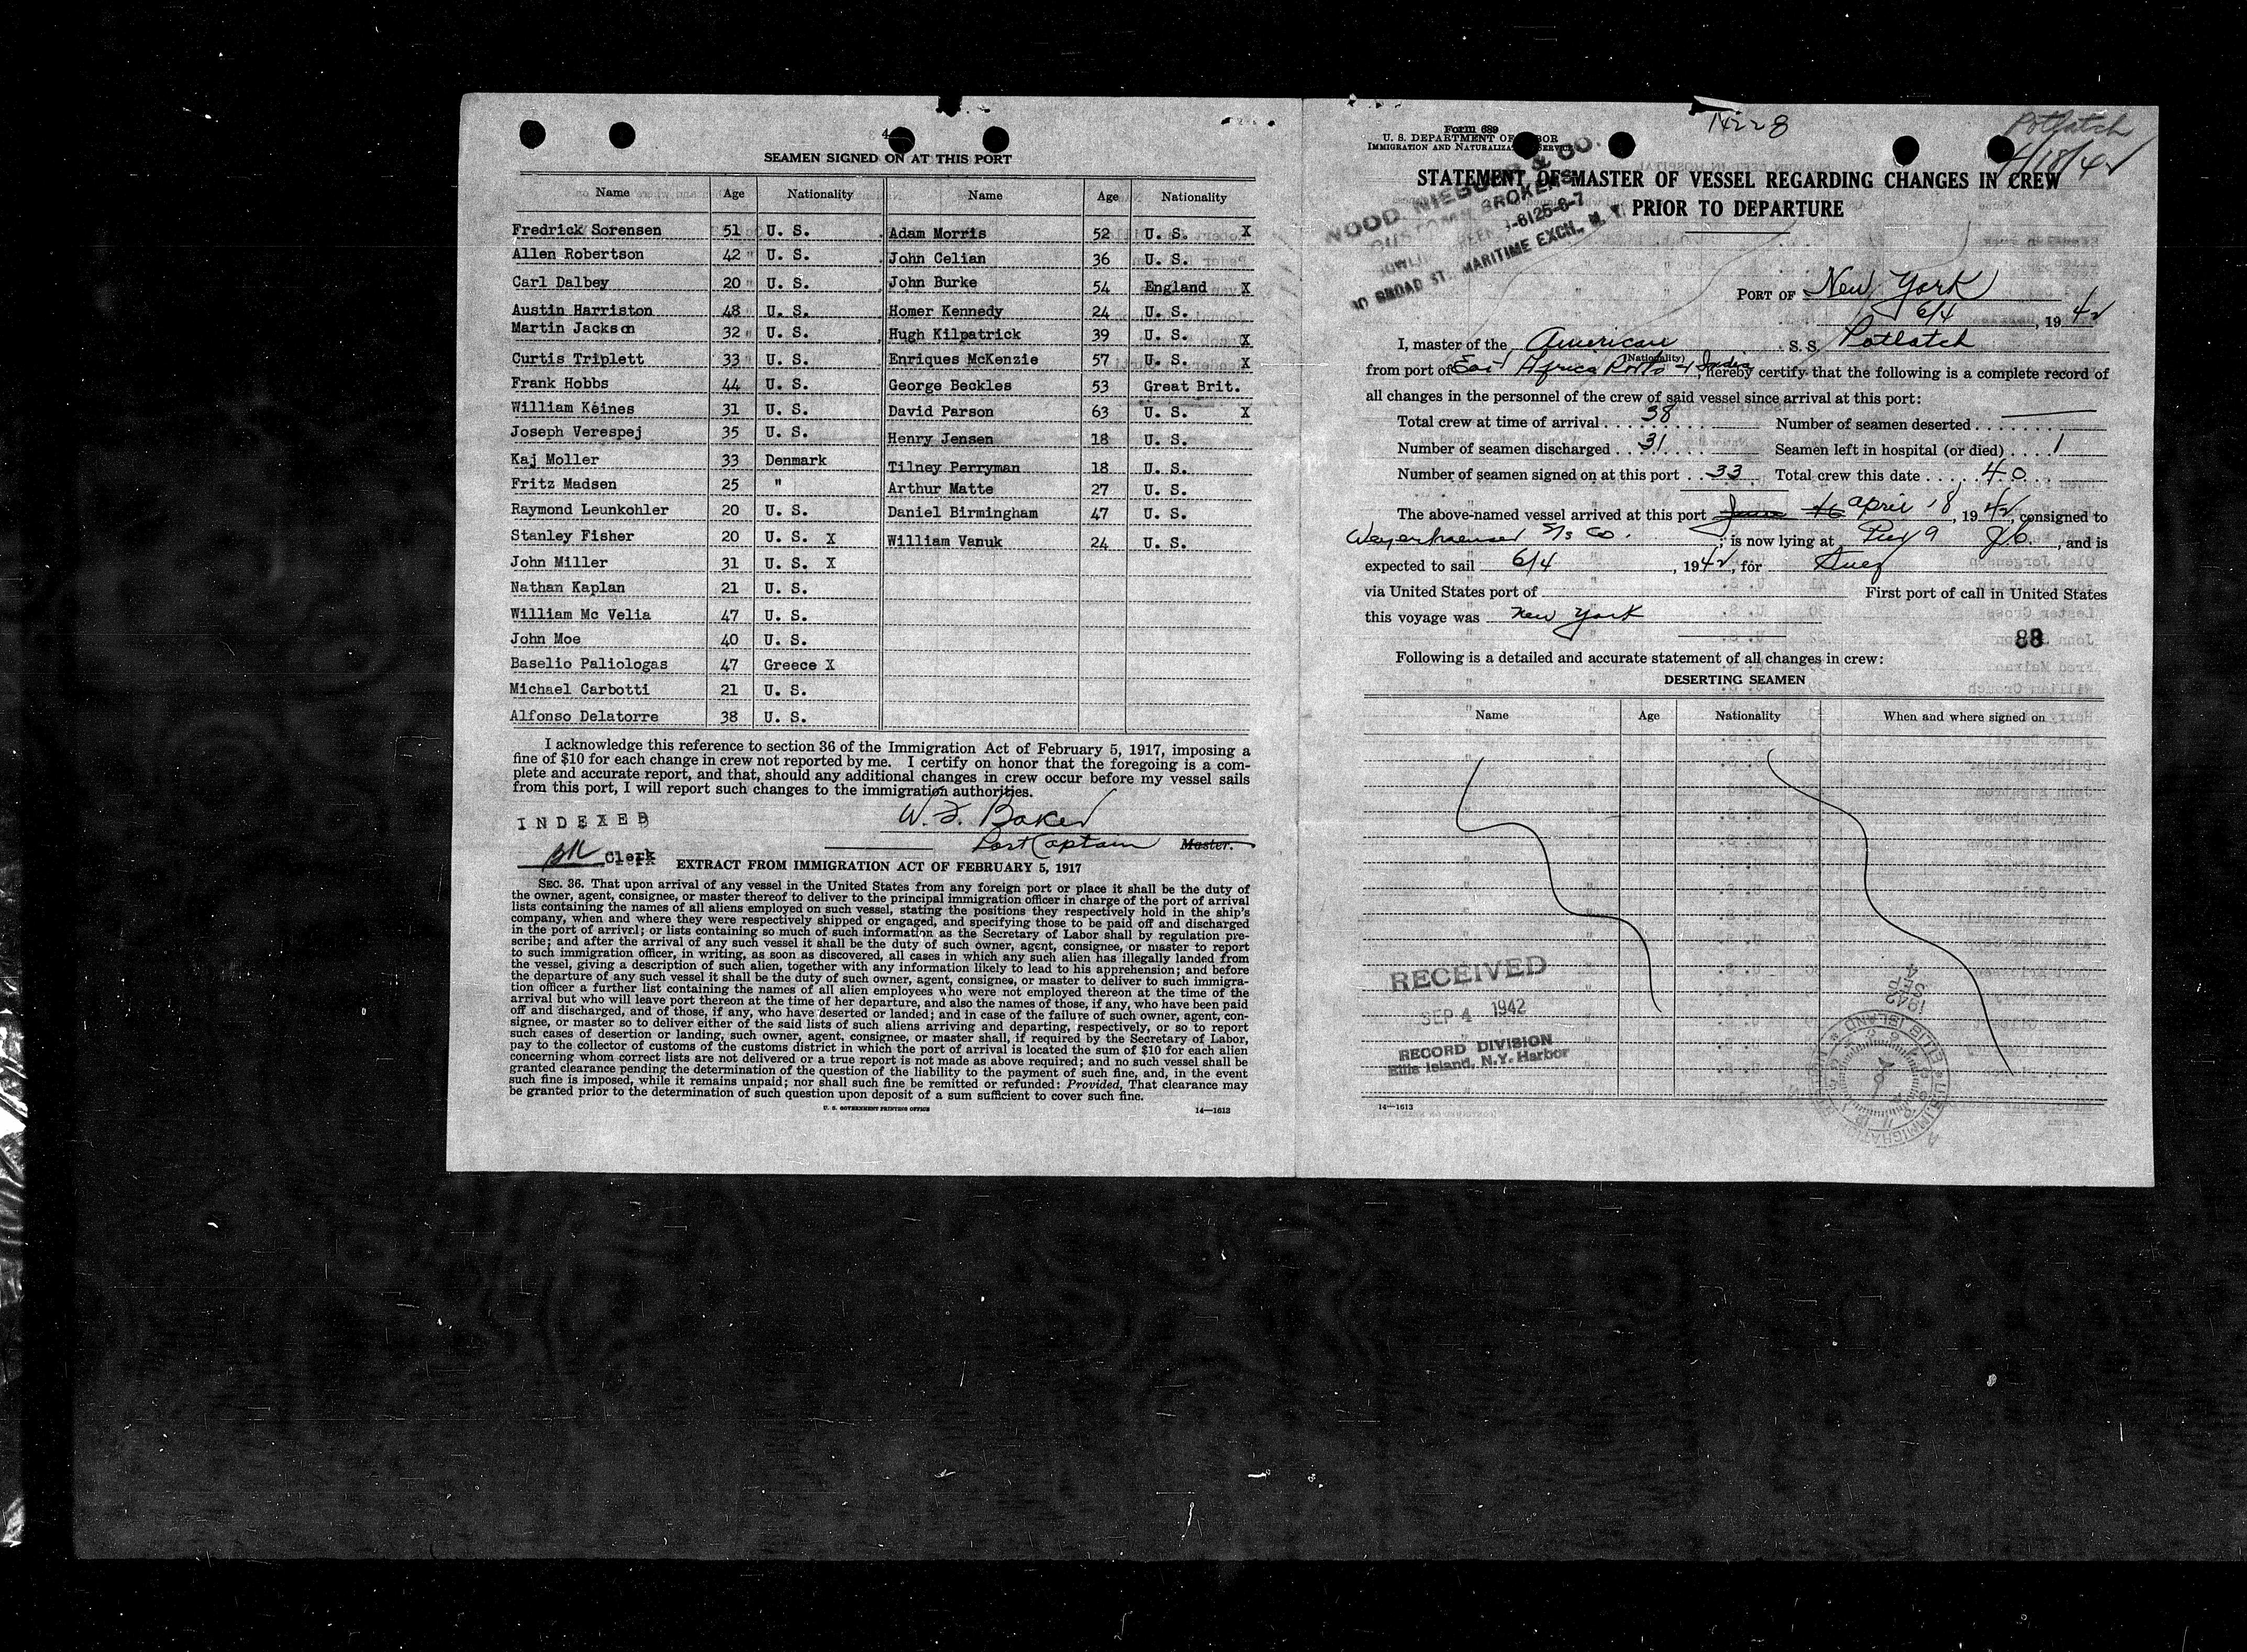 4
SEAMEN SIGNED ON AT THIS PORT
Name Age Nationality Name Age Nationality
Fredrick Sorensen 51 U. S. Adam Morris 52 U. S. X
Allen Robertson 42 U. S. John Celian 36 U. S.
Carl Dalbey 20 U. S. John Burke 54 England X
Austin Harriston 48 U. S. Homer Kennedy 24 U. S.
Martin Jackson 32 U. S. Hugh Kilpatrick 39 U. S. X
Curtis Triplett 33 U. S. Enriques McKenzie 57 U. S. X
Frank Hobbs 44 U. S. George Beckles 53 Great Brit.
William Keines 31 U. S. David Parson 63 U. S. X
Joseph Verespej 35 U. S. Henry Jensen 18 U. S.
Kaj Moller 33 Denmark Tilney Perryman 18 U. S.
Fritz Madsen 25 " Arthur Matte 27 U. S.
Raymond Leunkohler 20 U. S. Daniel Birmingham 47 U. S.
Stanley Fisher 20 U. S. X William Vanuk 24 U. S.
John Miller 31 U. S. X
Nathan Kaplan 21 U. S.
William Mc Velia 47 U. S.
John Moe 40 U. S.
Baselio Paliologas 47 Greece X
Michael Carbotti 21 U. S.
Alfonso Delatorre 38 U. S.
I acknowledge this reference to section 36 of the Immigration Act of February 5, 1917, imposing a
fine of $10 for each change in crew not reported by me. I certify on honor that the foregoing is a com-
plete and accurate report, and that, should any additional changes in crew occur before my vessel sails
from this port, I will report such changes to the immigration authorities.
INDEXED
W. F. Baker
Port Captain Master.
Clerk
EXTRACT FROM IMMIGRATION ACT OF FEBRUARY 5, 1917
SEC. 36. That upon arrival of any vessel in the United States from any foreign port or place it shall be the duty of
the owner, agent, consignee, or master thereof to deliver to the principal immigration officer in charge of the port of arrival
lists containing the names of all aliens employed on such vessel, stating the positions they respectively hold in the ship's
company, when and where they were respectively shipped or engaged, and specifying those to be paid off and discharged
in the port of arrival; or lists containing so much of such information as the Secretary of Labor shall by regulation pre-
scribe; and after the arrival of any such vessel it shall be the duty of such owner, agent, consignee, or master to report
to such immigration officer, in writing, as soon as discovered, all cases in which any such alien has illegally landed from
the vessel, giving a description of such alien, together with any information likely to lead to his apprehension; and before
the departure of any such vessel it shall be the duty of such owner, agent, consignee, or master to deliver to such immigra-
tion officer a further list containing the names of all alien employees who were not employed thereon at the time of the
arrival but who will leave port thereon at the time of her departure, and also the names of those, if any, who have been paid
off and discharged, and of those, if any, who have deserted or landed; and in case of the failure of such owner, agent, con-
signee, or master so to deliver either of the said lists of such aliens arriving and departing, respectively, or so to report
such cases of desertion or landing, such owner, agent, consignee, or master shall, if required by the Secretary of Labor,
pay to the collector of customs of the customs district in which the port of arrival is located the sum of $10 for each alien
concerning whom correct lists are not delivered or a true report is not made as above required; and no such vessel shall be
granted clearance pending the determination of the question of the liability to the payment of such fine, and, in the event
such fine is imposed, while it remains unpaid; nor shall such fine be remitted or refunded: Provided, That clearance may
be granted prior to the determination of such question upon deposit of a sum sufficient to cover such fine.
U. S. GOVERNMENT PRINTING OFFICE 14—1613
14228
Potlatch
4/18/42
Form 689
U. S. DEPARTMENT OF LABOR
IMMIGRATION AND NATURALIZATION SERVICE
STATEMENT OF MASTER OF VESSEL REGARDING CHANGES IN CREW
PRIOR TO DEPARTURE
& CO.
CUSTOMS BROKERS
-6125-6-7
BROAD ST. MARITIME EXCH., N. Y.
PORT OF New York
6/4, 1942
I, master of the American S. S. Potlatch
(Nationality)
from port of East Africa Ports & India, hereby certify that the following is a complete record of
all changes in the personnel of the crew of said vessel since arrival at this port:
Total crew at time of arrival 38 Number of seamen deserted
Number of seamen discharged 31 Seamen left in hospital (or died) 1
Number of seamen signed on at this port 33 Total crew this date 40
The above-named vessel arrived at this port April 18, 1942, consigned to
Weyerhaeuser S/S Co.; is now lying at Pier 9 JC., and is
expected to sail 6/4, 1942, for Suez
via United States port of First port of call in United States
this voyage was New York
88
Following is a detailed and accurate statement of all changes in crew:
DESERTING SEAMEN
Name Age Nationality When and where signed on
RECEIVED
SEP 4 1942
RECORD DIVISION
Ellis Island, N.Y. Harbor
1942 SEP 4
U.S. IMMIGRATION ELLIS ISLAND
14—1613